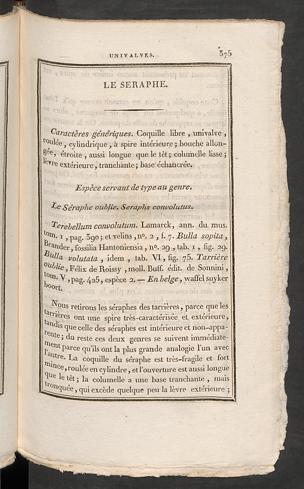 UNIVALVES. 375
LE SERAPHE.
Caractères génériques. Coquille libre, univalve,
roulée, cylindrique, à spire intérieure; bouche allon-
gée, étroite, aussi longue que le têt; columelle lisse;
lèvre extérieure, tranchante; base échancrée.
Espèce servant de type au genre.
Le Séraphe oublie. Seraphs convolutus.
Terebellum convolutum. Lamarck, ann. du mus.
tom. 1, pag. 390; et velins, n°. 2, f. 7. Bulla sopita,
Brander, fossilia Hantoniensia, n°. 29, tab. 1, fig. 29.
Bulla volutata, idem, tab. VI, fig. 75. Tarrière
oublie, Félix de Roissy, moll. Buff. édit. de Sonnini,
tom. V, pag. 425, espèce 2. — En belge, waffel suyker
hoort.
Nous retirons les séraphes des tarrières, parce que les
tarrières ont une spire très-caractérisée et extérieure,
tandis que celle des séraphes est intérieure et non-appa-
rente; du reste ces deux genres se suivent immédiate-
ment parce qu'ils ont la plus grande analogie l'un avec
l'autre. La coquille du séraphe est très-fragile et fort
mince, roulée en cylindre, et l'ouverture est aussi longue
que le têt; la columelle a une base tranchante, mais
tronquée, qui excède quelque peu la lèvre extérieure;